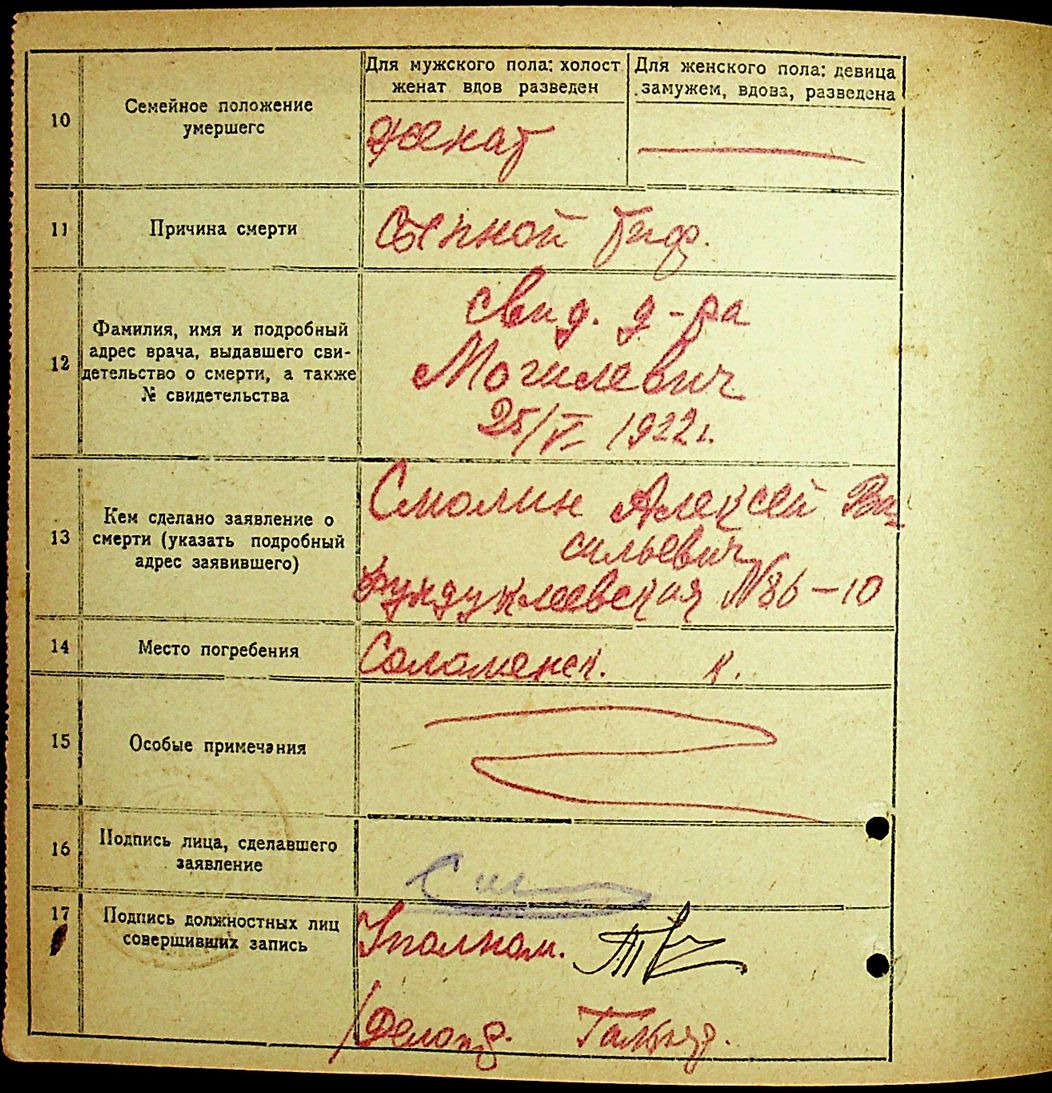 Для мужского пола: холост
женат вдов разведен
Для женского пола: девица
замужем, вдова, разведена
10
Семейное положение
умершегс
женат
11
Причина смерти
Сыпной тиф.
12
Фамилия, имя и подробный
адрес врача, выдавшего сви-
детельство о смерти, а также
№ свидетельства
свид. д-ра
Могилевич
25/V 1922г.
13
Кем сделано заявление о
смерти (указать подробный
адрес заявившего)
Смолин Алексей Ва-
сильевич
Фундуклеевская №86-10
14
Место погребения
Соломенск. к.
15
Особые примечания
16
Подпись лица, сделавшего
заявление
17
Подпись должностных лиц
совершивших запись
Уполном.
Делопр.